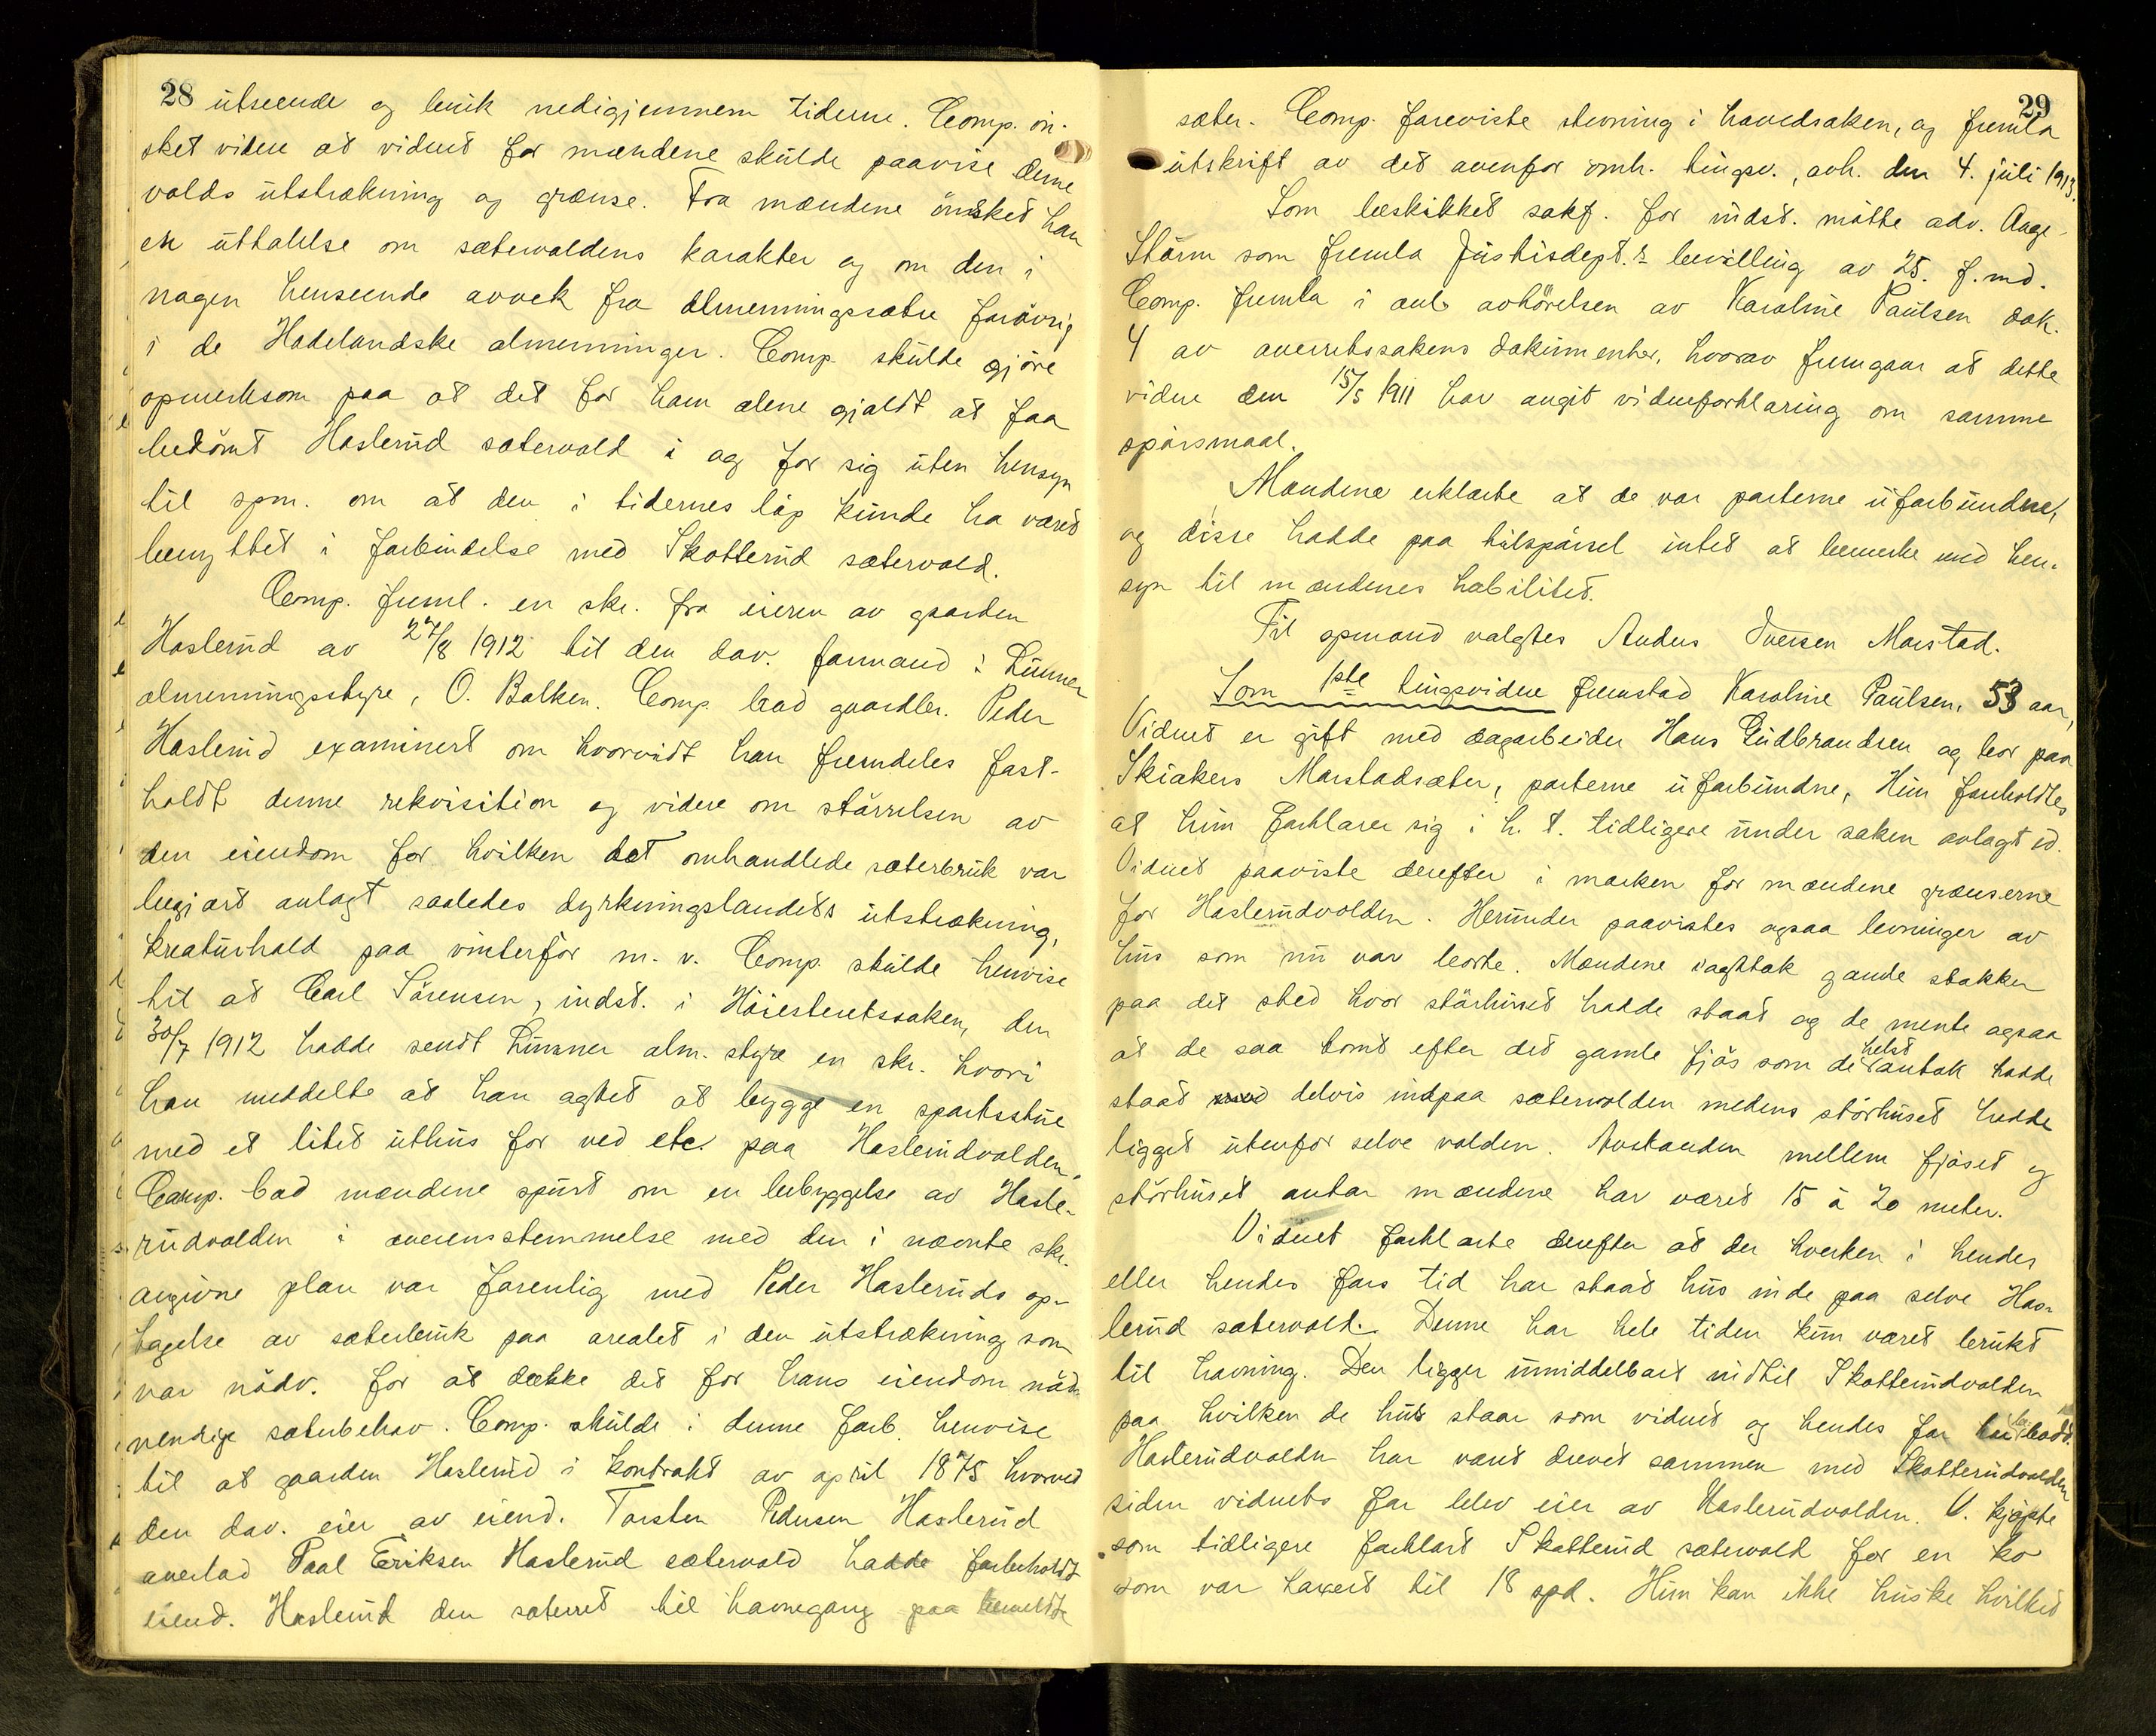 28
utseende og bruk nedigjennem tiderne. Comp. øn-
sket videre at vidnet for mændene skulde paavise denne
volds utstrækning og grænse. Fra mændene ønsket han
en uttalelse om sætervoldens karakter og om den i
nogen henseende avvek fra almenningssætre forøvrig
i de Hadelandske almenninger. Comp. skulde gjøre
opmerksom paa at det for ham alene gjaldt at faa
bedømt Haslerud sætervold i og for sig uten hensyn
til spm. om at den i tidernes løp kunde ha været
benyttet i forbindelse med Skotterud sætervold.
Comp. freml. en skr. fra eieren av gaarden
Haslerud av 27/8 1912 til den dav. formand i Lunner
almenningsstyre, O. Balken. Comp. bad gaardbr. Peder
Haslerud examinert om hvorvidt han fremdeles fast-
holdt denne rekvisition og videre om størrelsen av
den eiendom for hvilken det omhandlede sæterbruk var
begjært anlagt saaledes dyrkningslandets utstrækning,
kreaturhold paa vinterfor m. v. Comp. skulde henvise
til at Carl Sørensen, indst. i Høiesteretssaken, den
30/7 1912 hadde sendt Lunner alm. styre en skr. hvori
han meddelte at han agtet at bygge en sportsstue
med et litet uthus for ved etc. paa Haslerudvolden.
Comp. bad mændene spurt om en bebyggelse av Hasle-
rudvolden i overensstemmelse med den i nævnte skr.
angivne plan var forenlig med Peder Hasleruds op-
tagelse av sæterbruk paa arealet i den utstrækning som
var nødv. for at dække det for hans eiendom nød-
vendige sæterbehov. Comp. skulde i denne forb. henvise
til at gaarden Haslerud i kontrakt av april 1875 hvorved
den dav. eier av eiend. Torsten Pedersen Haslerud
overlod Paal Eriksen Haslerud sætervold hadde forbeholdt
eiend. Haslerud den sæterret til havnegang paa bemeldte
29
sæter. Comp. foreviste stevning i hovedsaken, og fremla
utskrift av det ovenfor omh. tingsv., avh. den 4. juli 1913.
Som beskikket sakf. for indst. møtte adv. Aage
Storm som fremla Justisdept.s bevilling av 25. f. md.
Comp. fremla i anl. avhørelsen av Karoline Paulsen dok.
4 av overretssakens dokumenter, hvorav fremgaar at dette
vidne den 15/5 1911 har avgit vidneforklaring om samme
spørsmaal.
Mændene erklærte at de var parterne uforbundne,
og disse hadde paa tilspørsel intet at bemerke med hen-
syn til mændenes habilitet.
Til opmand valgtes Anders Iversen Marstad.
Som 1ste tingsvidne fremstod Karoline Paulsen, 53 aar,
Vidnet er gift med dagarbeider Hans Gudbrandsen og bor paa
Skiakers Marstadsæter, parterne uforbundne, Hun foreholdtes
at hun forklarer sig i h. t. tidligere under saken avlagt ed.
Vidnet paaviste derefter i marken for mændene grænserne
for Haslerudvolden. Herunder paavistes ogsaa levninger av
hus som nu var borte. Mændene iagttok gamle stokker
paa det sted hvor størhuset hadde staat og de mente ogsaa
at de saa tomt efter det gamle fjøs som de helst antok hadde
staat delvis indpaa sætervolden medens størhuset hadde
ligget utenfor selve volden. Avstanden mellem fjøset og
størhuset antar mændene har været 15 à 20 meter.
Vidnet forklarte derefter at der hverken i hendes
eller hendes fars tid har staat hus inde paa selve Has-
lerud sætervold. Denne har hele tiden kun været brukt
til havning. Den ligger umiddelbart indtil Skotterudvolden
paa hvilken de hus staar som vidnet og hendes far har bodd.
Haslerudvolden har været drevet sammen med Skotterudvolden
siden vidnets far blev eier av Haslerudvolden. V. kjøpte
som tidligere forklart Skotterud sætervold for en ko
som var taxert til 18 spd. Hun kan ikke huske hvilket